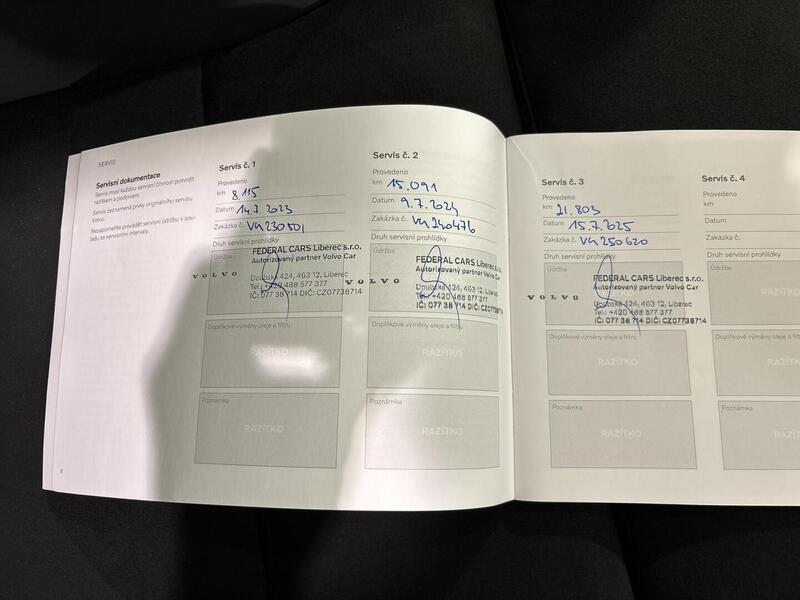 SERVIS
Servisní dokumentace
Servis musí každou servisní činnost potvrdit
razítkem a podpisem.
Servis zaznamená prvky originálního servisu
Volvo.
Nezapomeňte provádět servisní údržbu v sou-
ladu se servisními intervaly.
6
Servis č. 1
Provedeno
km 8.115
Datum 14.7.2023
Zakázka č. VH230501
Druh servisní prohlídky
Údržba
FEDERAL CARS Liberec s.r.o.
Autorizovaný partner Volvo Car
VOLVO
Doubská 424, 463 12, Liberec
Tel.: +420 488 577 377
IČ: 077 38 714 DIČ: CZ07738714
Doplňkové výměny oleje a filtru
RAZÍTKO
Poznámka
RAZÍTKO
Servis č. 2
Provedeno
km 15.091
Datum 9.7.2024
Zakázka č. VH240476
Druh servisní prohlídky
Údržba
FEDERAL CARS Liberec s.r.o.
Autorizovaný partner Volvo Car
VOLVO
Doubská 424, 463 12, Liberec
Tel.: +420 488 577 377
IČ: 077 38 714 DIČ: CZ0773
Doplňkové výměny oleje a filtru
RAZÍTKO
Poznámka
RAZÍTKO
Servis č. 3
Provedeno
km 21.803
Datum 15.7.2025
Zakázka č. VH250620
Druh servisní prohlídky
Údržba
FEDERAL CARS Liberec s.r.o.
Autorizovaný partner Volvo Car
VOLVO
Doubská 424, 463 12, Liberec
Tel.: +420 488 577 377
IČ: 077 38 714 DIČ: CZ07738714
Doplňkové výměny oleje a filtru
RAZÍTKO
Poznámka
RAZÍTKO
Servis č. 4
Provedeno
km
Datum
Zakázka č.
Druh servisní prohlídky
Údržba
RAZÍTKO
Doplňkové výměny oleje a
RAZÍTKO
Poznámka
RAZÍTKO